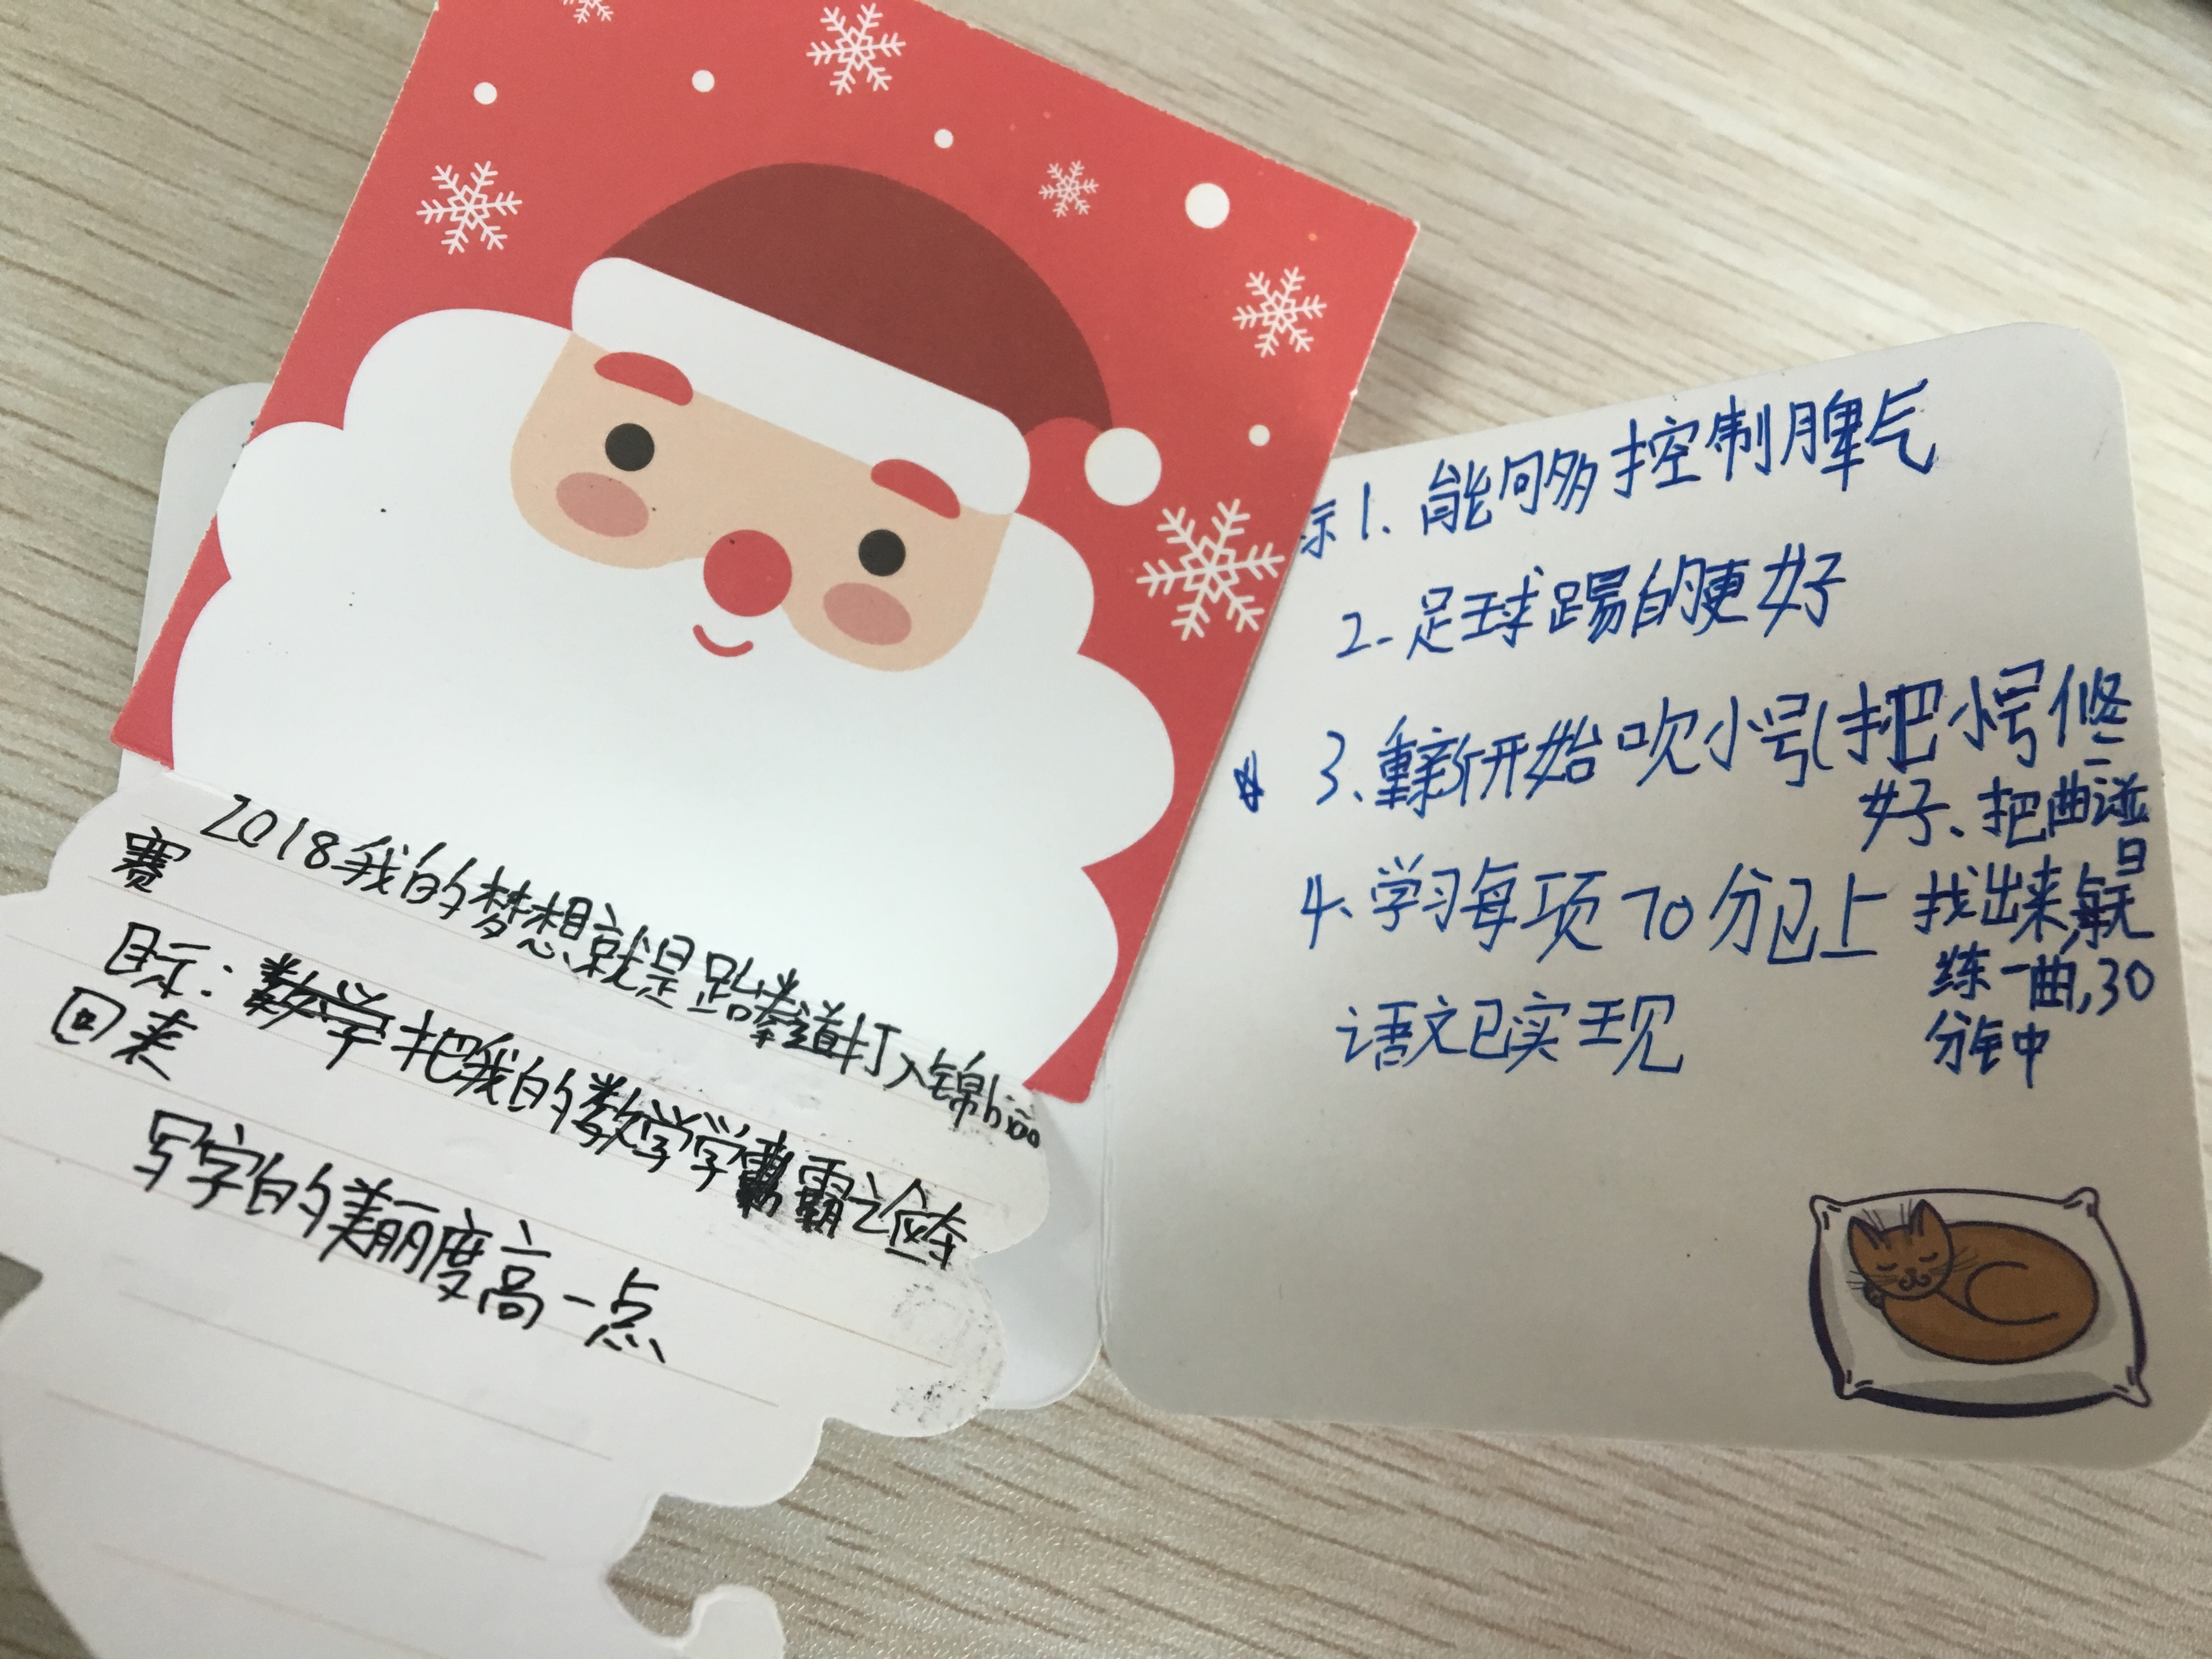 2018我的梦想就是跆拳道打入锦
赛
目标：数学把我的数学学霸之位夺
回来
写字的美丽度高一点
标1、能够控制脾气
2-足球踢的更好
3、重新开始吹小号(把小号修
好、把曲谱
找出来,每天
练一曲,30
分钟
4、学习每项70分已上
语文已实现